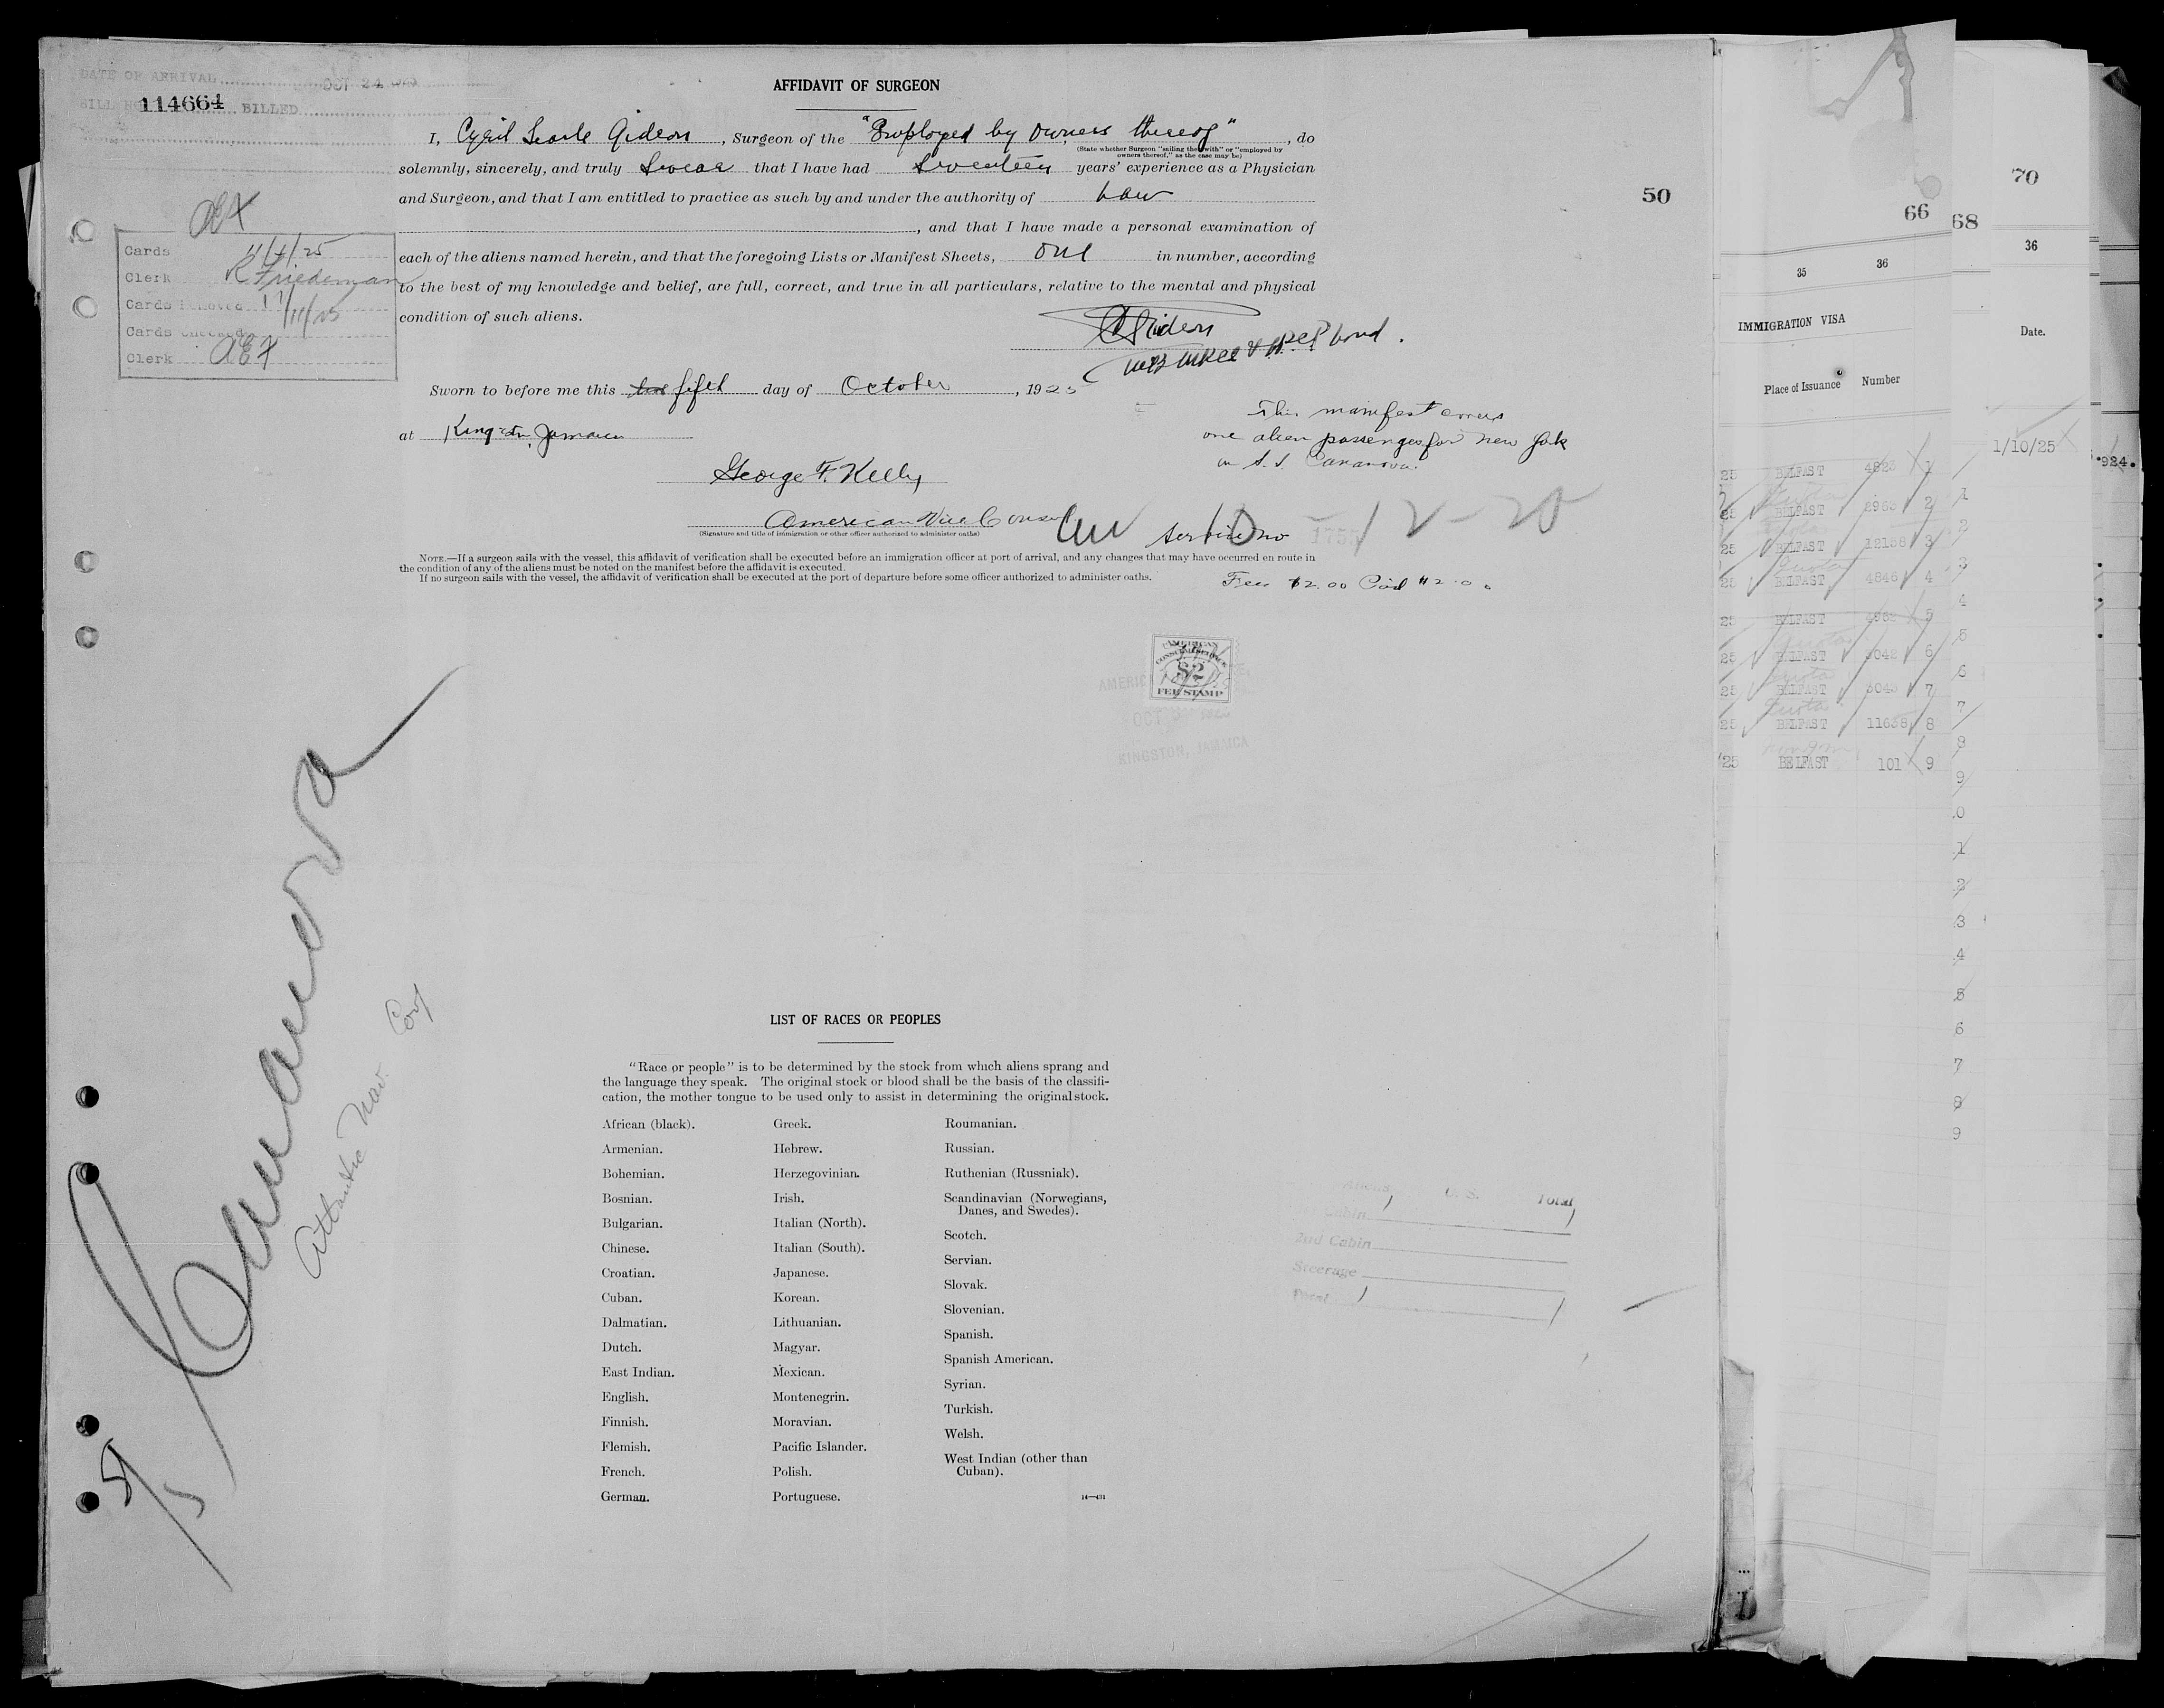 DATE OF ARRIVAL OCT 24
114664 BILLED
AFFIDAVIT OF SURGEON
I, Cyril Searle Gideon, Surgeon of the "Employed by owners thereof", do
(State whether Surgeon "sailing therewith" or "employed by
owners thereof," as the case may be)
solemnly, sincerely, and truly Swear that I have had years' experience as a Physician
and Surgeon, and that I am entitled to practice as such by and under the authority of Law
, and that I have made a personal examination of
each of the aliens named herein, and that the foregoing Lists or Manifest Sheets, one in number, according
to the best of my knowledge and belief, are full, correct, and true in all particulars, relative to the mental and physical
condition of such aliens.
Cards 11/4/25
Clerk K Friedeman
Cards 11/11/25
Cards
Clerk
CSGideon
Sworn to before me this fifth day of October, 1925
at Kingston, Jamaica
George F. Kelly
American Vice Consul
(Signature and title of immigration or other officer authorized to administer oaths)
This manifest covers
one alien passenger for New York
on S. S. Cananova.
Service No 1755
Fee $2.00
NOTE.—If a surgeon sails with the vessel, this affidavit of verification shall be executed before an immigration officer at port of arrival, and any changes that may have occurred en route in
the condition of any of the aliens must be noted on the manifest before the affidavit is executed.
If no surgeon sails with the vessel, the affidavit of verification shall be executed at the port of departure before some officer authorized to administer oaths.
AMERICAN
CONSULAR SERVICE
$2
FEE STAMP
OCT
KINGSTON, JAMAICA
Cananova
Atlantic Nav. Corp
LIST OF RACES OR PEOPLES
"Race or people" is to be determined by the stock from which aliens sprang and
the language they speak. The original stock or blood shall be the basis of the classifi-
cation, the mother tongue to be used only to assist in determining the original stock.
African (black).
Armenian.
Bohemian.
Bosnian.
Bulgarian.
Chinese.
Croatian.
Cuban.
Dalmatian.
Dutch.
East Indian.
English.
Finnish.
Flemish.
French.
German.
Greek.
Hebrew.
Herzegovinian.
Irish.
Italian (North).
Italian (South).
Japanese.
Korean.
Lithuanian.
Magyar.
Mexican.
Montenegrin.
Moravian.
Pacific Islander.
Polish.
Portuguese.
Roumanian.
Russian.
Ruthenian (Russniak).
Scandinavian (Norwegians,
Danes, and Swedes).
Scotch.
Servian.
Slovak.
Slovenian.
Spanish.
Spanish American.
Syrian.
Turkish.
Welsh.
West Indian (other than
Cuban).
14—431
Aliens U. S. Total
Cabin 1 1
2nd Cabin
Steerage
Total 1 1
50
66
35 36
IMMIGRATION VISA
Place of Issuance Number
25 BELFAST 4823 1
25 BELFAST 2953 2
25 BELFAST 12138 3
25 BELFAST 4846 4
25 BELFAST 4952 5
25 BELFAST 3042 6
25 BELFAST 3043 7
25 BELFAST 11638 8
25 BELFAST 101 9
68
1
2
3
4
5
6
7
8
9
0
1
2
3
4
5
6
7
8
9
70
36
Date.
1/10/25
924.